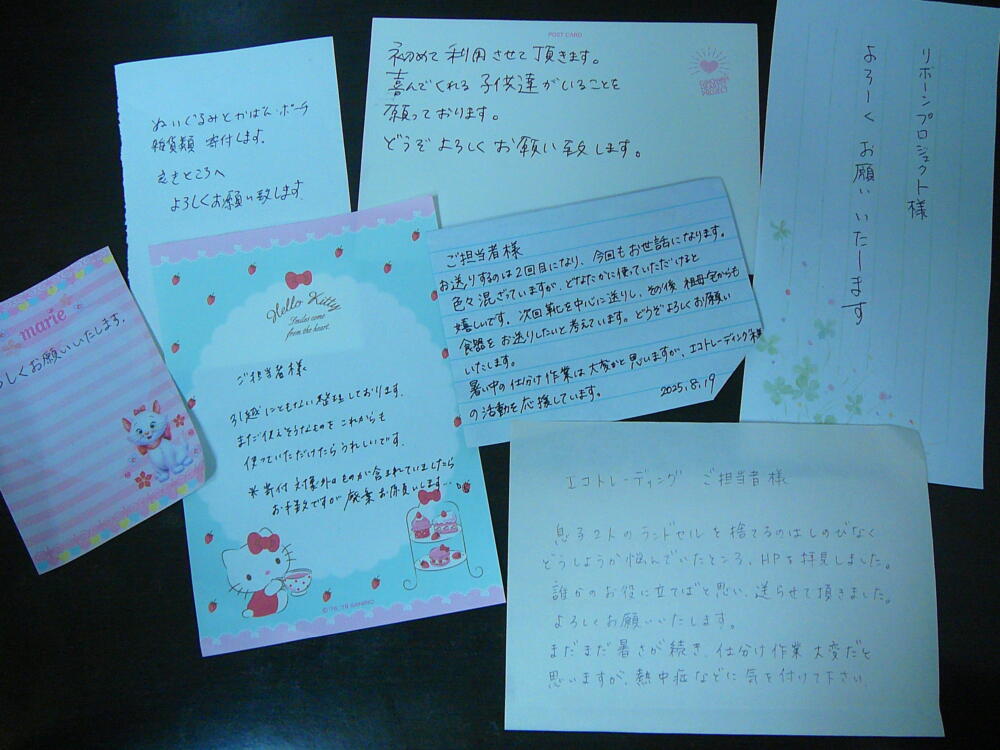 ぬいぐるみとかばん・ポーチ
雑貨類 寄付します。
よろしくお願い致します。
POST CARD
初めて利用させて頂きます。
喜んでくれる子供達がいることを
願っております。
どうぞよろしくお願い致します。
リボーンプロジェクト様
よろしくお願いいたします
marie
しくお願いいたします。
Hello Kitty
Smiles come
from the heart.
ご担当者様
引越にともない整理しております。
まだ使えそうなものをこれからも
使っていただけたらうれしいです。
※寄付対象外のものが含まれていましたら
お手数ですが廃棄お願いします…。
©'76,'19 SANRIO
ご担当者様
お送りするのは2回目になり、今回もお世話になります。
色々混ざっていますが、どなたかに使っていただけると
嬉しいです。次回靴を中心に送りし、その後祖母宅からも
食器をお送りしたいと考えています。どうぞよろしくお願い
いたします。
暑い中の仕分け作業は大変かと思いますが、エコトレーディング様
の活動を応援しています。
2025.8.19
エコトレーディング ご担当者様
息子2人のランドセルを捨てるのはしのびなく
どうしようか悩んでいたところ、HPを拝見しました。
誰かのお役に立てばと思い、送らせて頂きました。
よろしくお願いいたします。
まだまだ暑さが続き、仕分け作業大変だと
思いますが、熱中症などに気を付けて下さい。